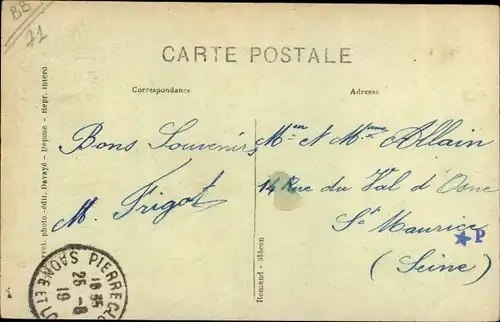 BB
71
CARTE POSTALE
Correspondance
Adresse
Bons Souvenirs
M. Frigot
Mr et Mme Allain
14 Rue du Val d'Osne
St Maurice
(Seine)
P
photo-édit. Davayé - Dépose - Repr. interd
Romand - Mâcon
PIERRECL
SAONE ET L
18 35
25 - 8
19